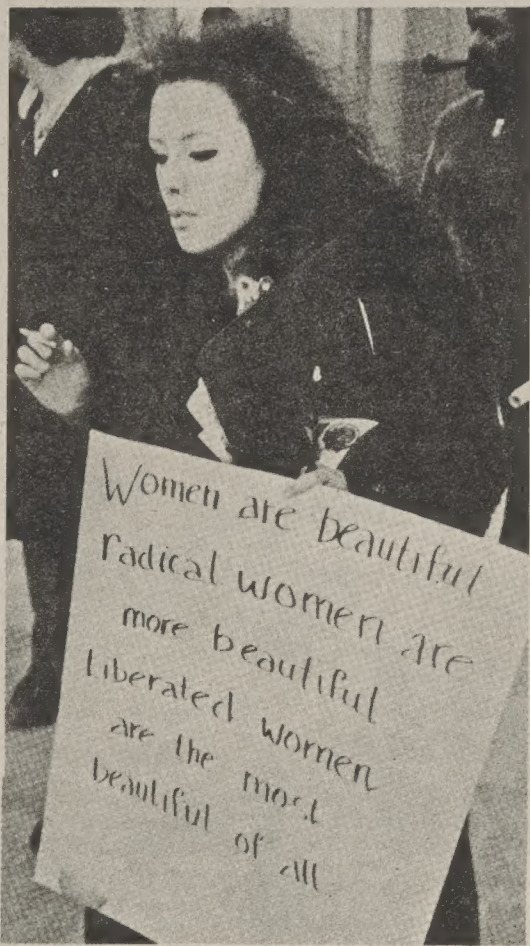 Women are beautiful
radical women are
more beautiful
liberated women
are the most
beautiful of all